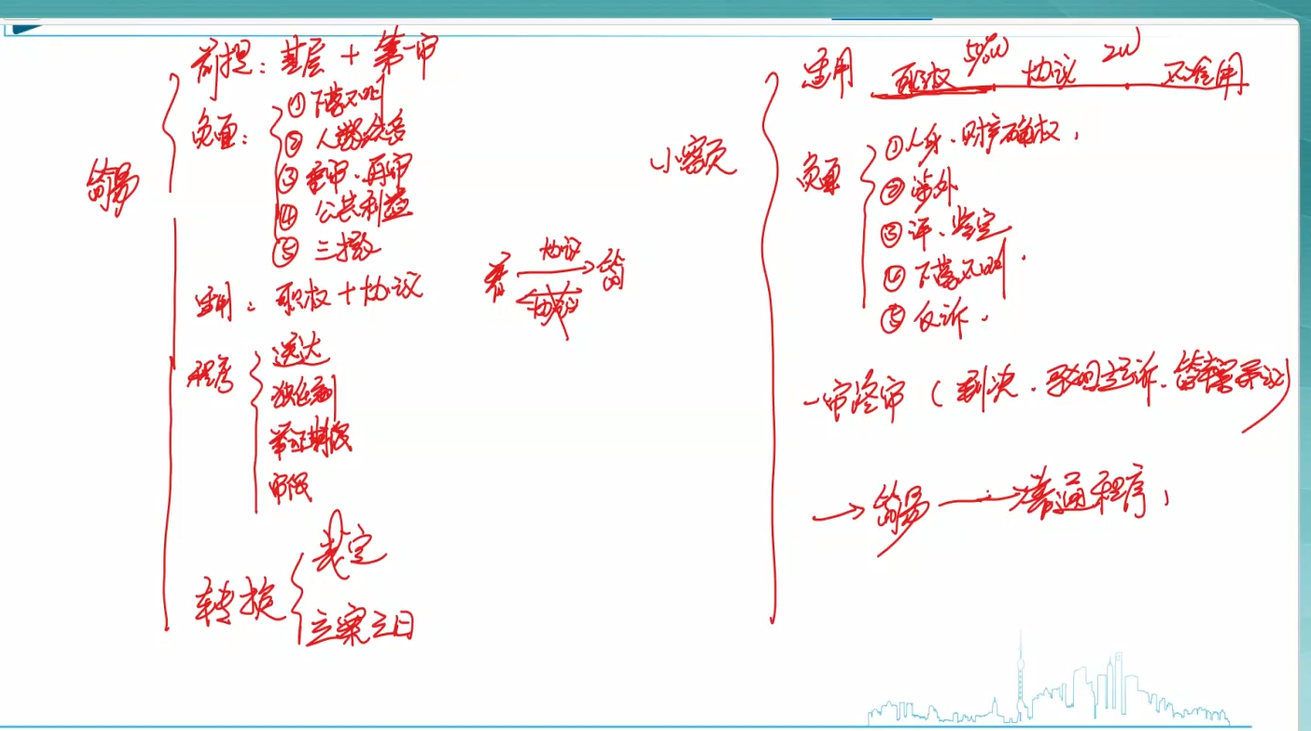 简易
前提：基层 + 第一审
负面：
① 下落不明
② 人数众多
③ 重审、再审
④ 公共利益
⑤ 三撤
适用：职权 + 协议
普 协议 简
协议
程序
送达
独任制
举证期限
审限
转换
裁定
立案之日
小额
适用 职权 50%W 协议 2W 不适用
负面
① 人身、财产确权，
② 涉外
③ 评、鉴定
④ 下落不明．
⑤ 反诉．
一审终审（判决、驳回起诉、管辖异议）
→ 简易 → 普通程序，